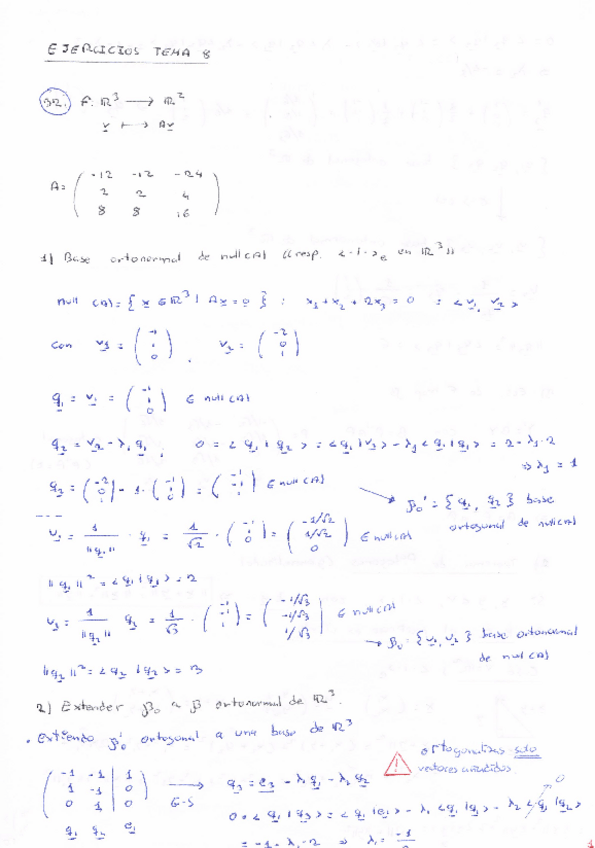 EJERCICIOS TEMA 8
92. F: ℝ³ → ℝ²
v ↦ Av
A = ( -12 -12 -24
2 2 4
8 8 16 )
1) Base ortonormal de null(A) (resp. <·|·>e en ℝ³)
null (A) = { x ∈ ℝ³ | Ax = 0 } : x₁ + x₂ + 2x₃ = 0 = < v₁, v₂ >
con v₁ = ( -1 1 0 ), v₂ = ( -2 0 1 )
q₁ = v₁ = ( -1 1 0 ) ∈ null(A)
q₂ = v₂ - λ₁ q₁, 0 = < q₁ | q₂ > = < q₁ | v₂ > - λ₁ < q₁ | q₁ > = 2 - λ₁·2
⇒ λ₁ = 1
q₂ = ( -2 0 1 ) - 1 · ( -1 1 0 ) = ( -1 -1 1 ) ∈ null(A)
→ β₀' = { q₁, q₂ } base
ortogonal de null(A)
v₁ = 1/||q₁|| · q₁ = 1/√2 · ( -1 1 0 ) = ( -1/√2 1/√2 0 ) ∈ null(A)
||q₁||² = < q₁ | q₁ > = 2
v₂ = 1/||q₂|| q₂ = 1/√3 · ( -1 -1 1 ) = ( -1/√3 -1/√3 1/√3 ) ∈ null(A)
→ β₀ = { v₁, v₂ } base ortonormal
de null(A)
||q₂||² = < q₂ | q₂ > = 3
2) Extender β₀ a β ortonormal de ℝ³.
• Extiendo β₀' ortogonal a una base de ℝ³
ortogonalizas solo
vectores añadidos
( -1 -1 | 1
1 -1 | 0
0 1 | 0 )
q₁ q₂ e₁
→ G-S
q₃ = e₁ - λ₁ q₁ - λ₂ q₂
0 = < q₁ | q₃ > = < q₁ | e₁ > - λ₁ < q₁ | q₁ > - λ₂ < q₁ | q₂ > 0
= -1 - λ₁·2 ⇒ λ₁ = -1/2